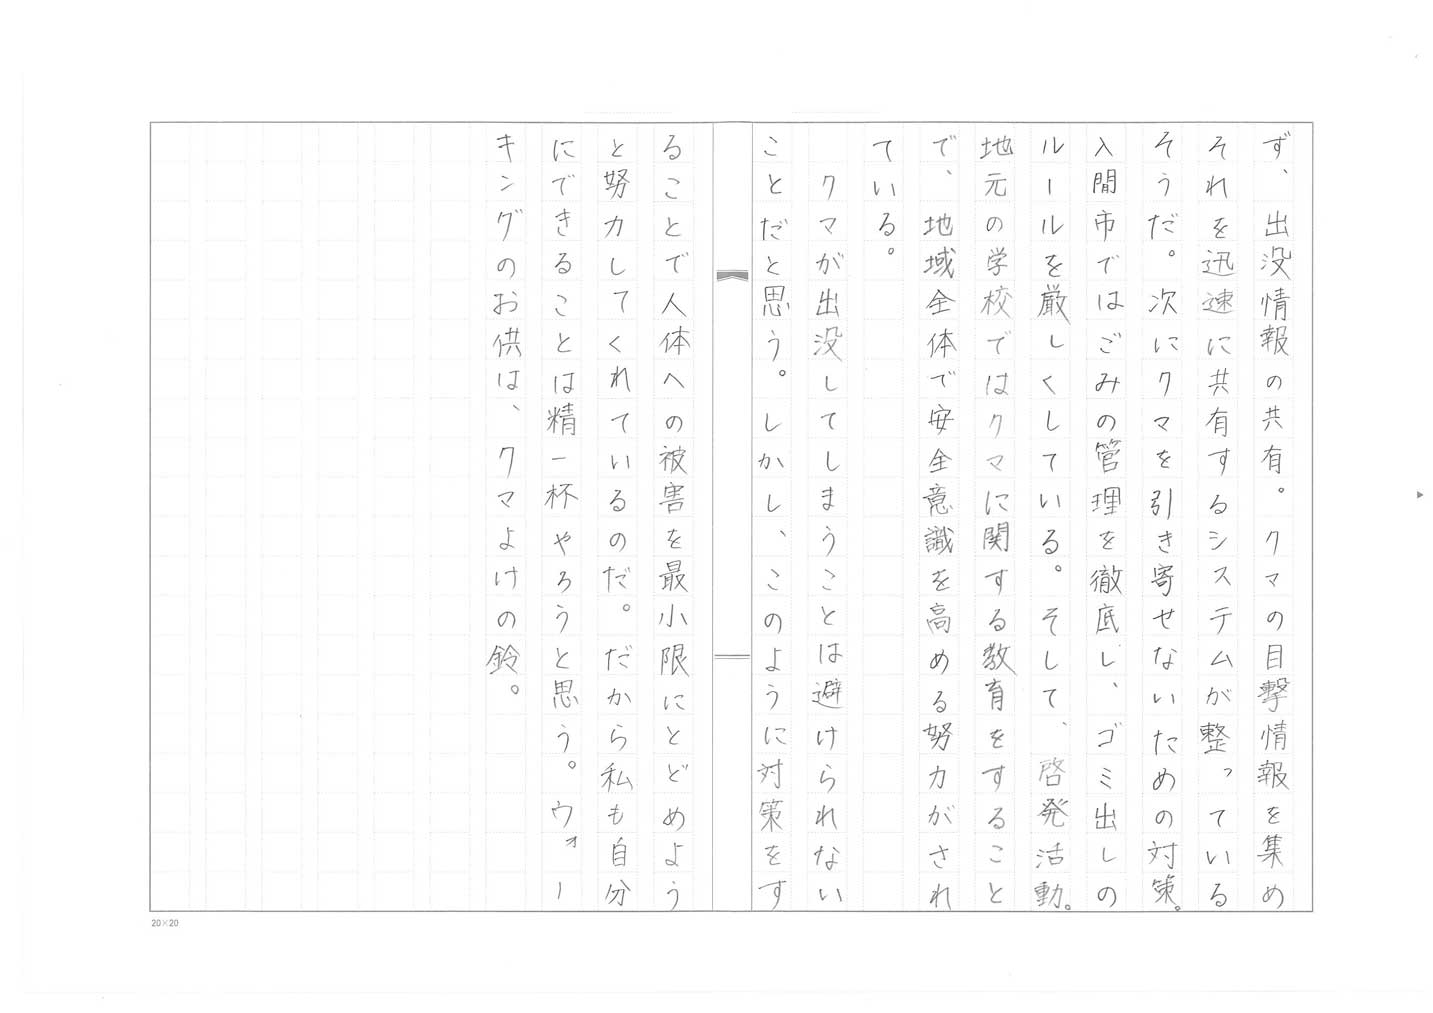 ず、出没情報の共有。クマの目撃情報を集め
それを迅速に共有するシステムが整っている
そうだ。次にクマを引き寄せないための対策。
入間市ではごみの管理を徹底し、ゴミ出しの
ルールを厳しくしている。そして、啓発活動。
地元の学校ではクマに関する教育をすること
で、地域全体で安全意識を高める努力がされ
ている。
クマが出没してしまうことは避けられない
ことだと思う。しかし、このように対策をす
ることで人体への被害を最小限にとどめよう
と努力してくれているのだ。だから私も自分
にできることは精一杯やろうと思う。ウォー
キングのお供は、クマよけの鈴。
20×20